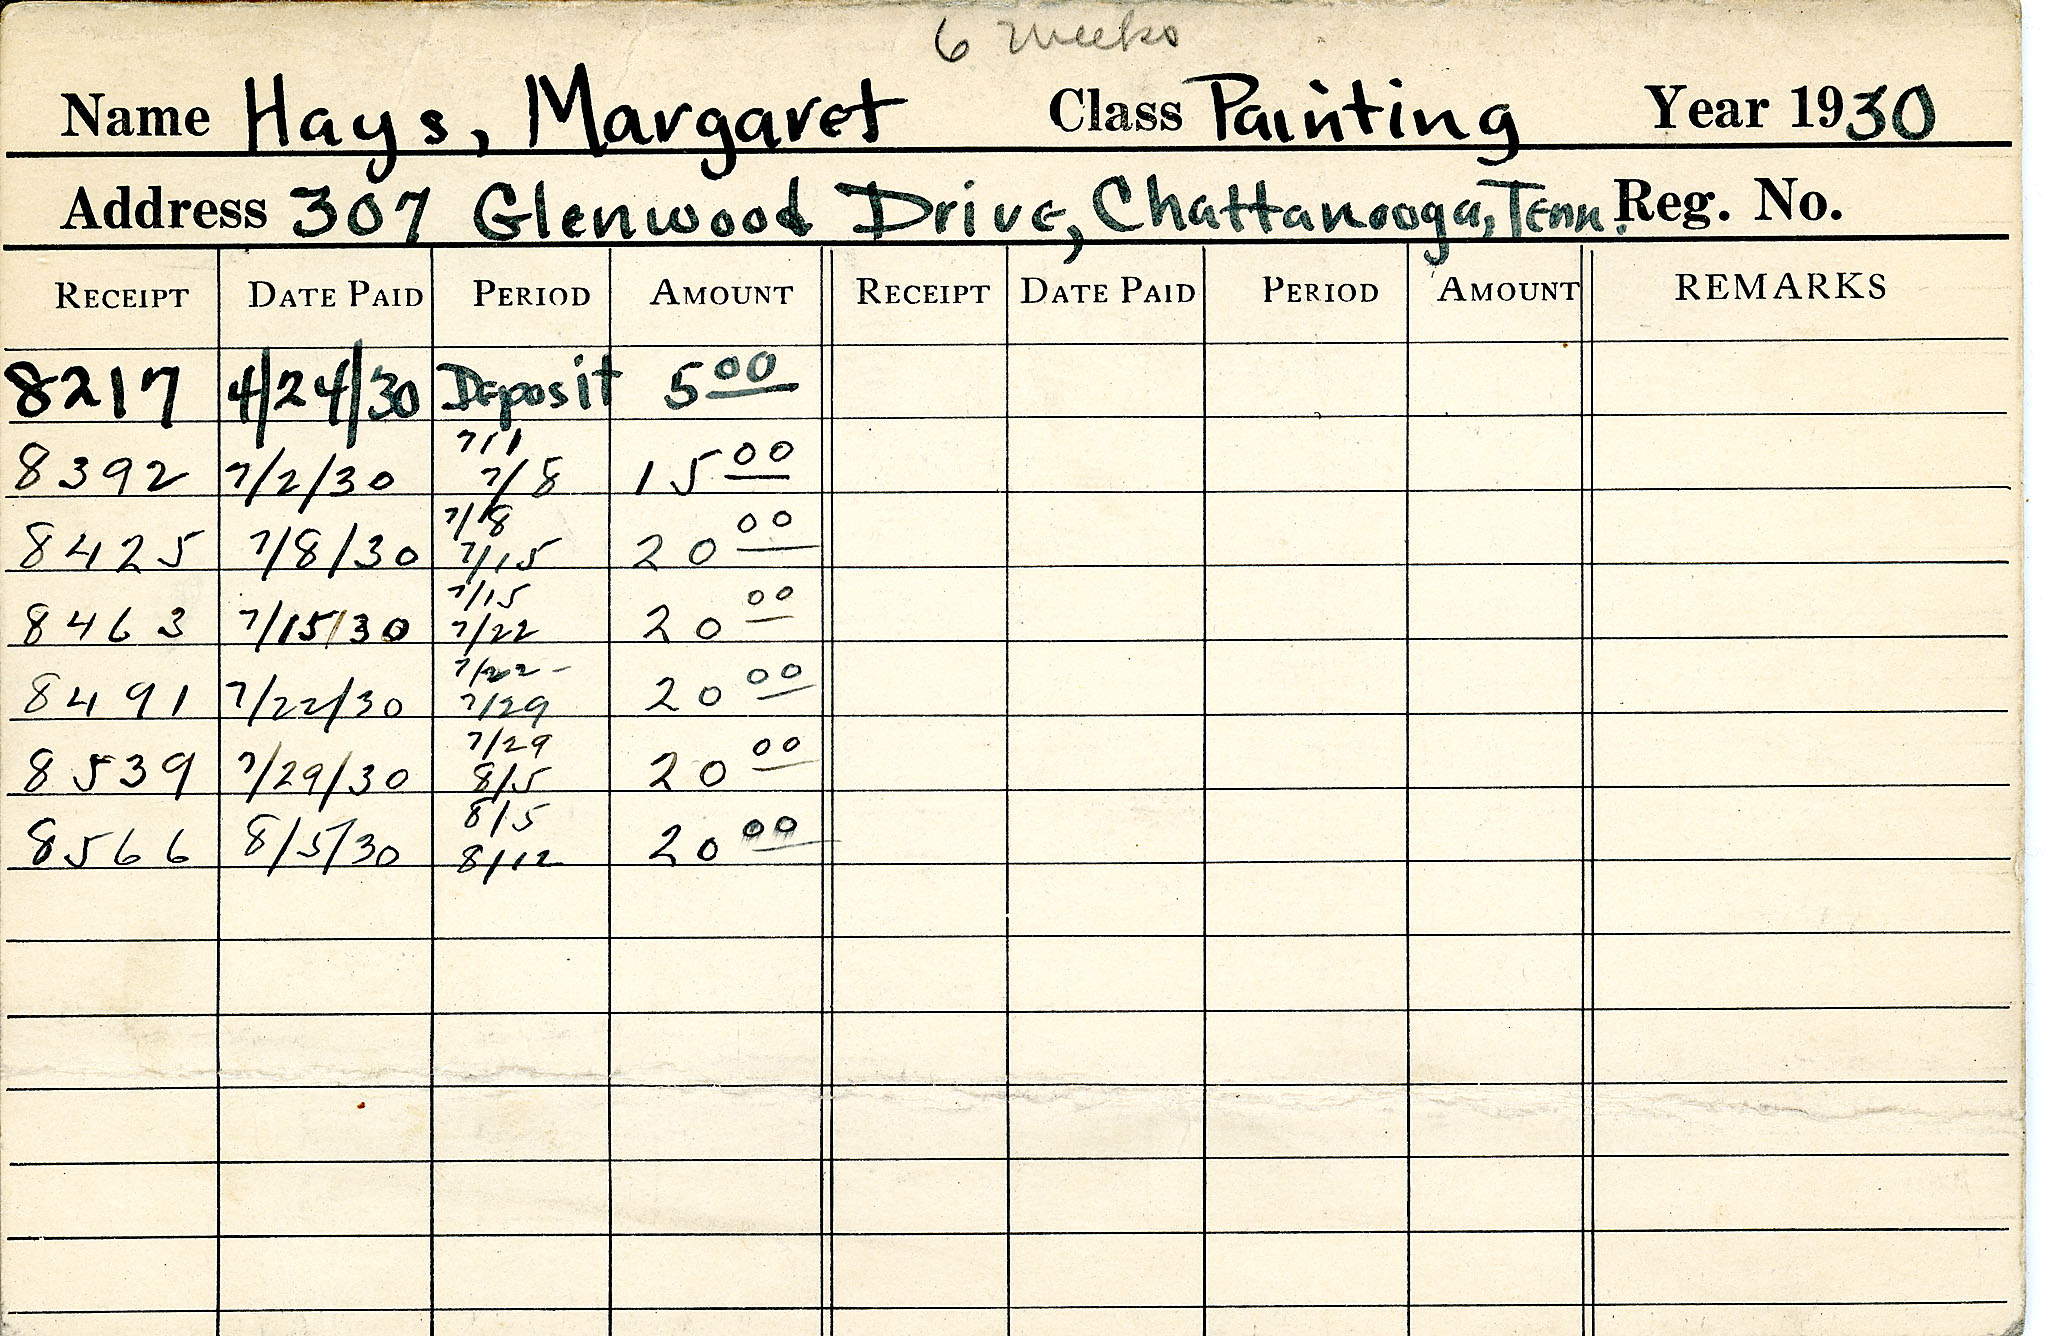 6 Weeks
Name Hays, Margaret Class Painting Year 1930
Address 307 Glenwood Drive, Chattanooga, Tenn. Reg. No.
RECEIPT DATE PAID PERIOD AMOUNT RECEIPT DATE PAID PERIOD AMOUNT REMARKS
8217 4/24/30 Deposit 5 00
7/1
8392 7/2/30 7/8 15 00
7/8
8425 7/8/30 7/15 20 00
7/15
8463 7/15/30 7/22 20 00
7/22 -
8491 7/22/30 7/29 20 00
7/29
8539 7/29/30 8/5 20 00
8/5
8566 8/5/30 8/12 20 00